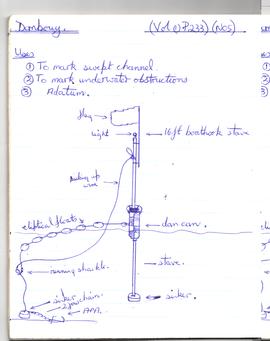 Danbuoy. (Vol I P.233) (NOS)
Uses
① To mark swept channel.
② To mark underwater obstructions
③ Adatum.
flag
light
16ft boathook stave
up
wire
eliptical floats
dan can.
running shackle.
stave.
sinker
chain
sinker.